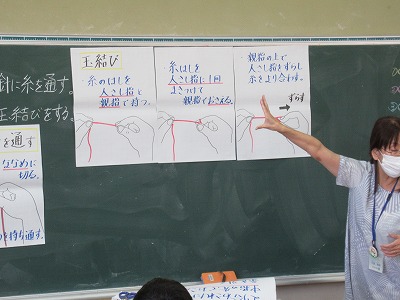 針に糸を通す。
玉結びをする。
を通す
ななめに
切る。
を持ち通す。
玉結び
糸のはしを
人さし指と
親指で持つ。
糸はしを
人さし指に1回
まきつけて
親指でおさえる。
親指の上で
人さし指をずらし
糸をより合わす。
ずらす